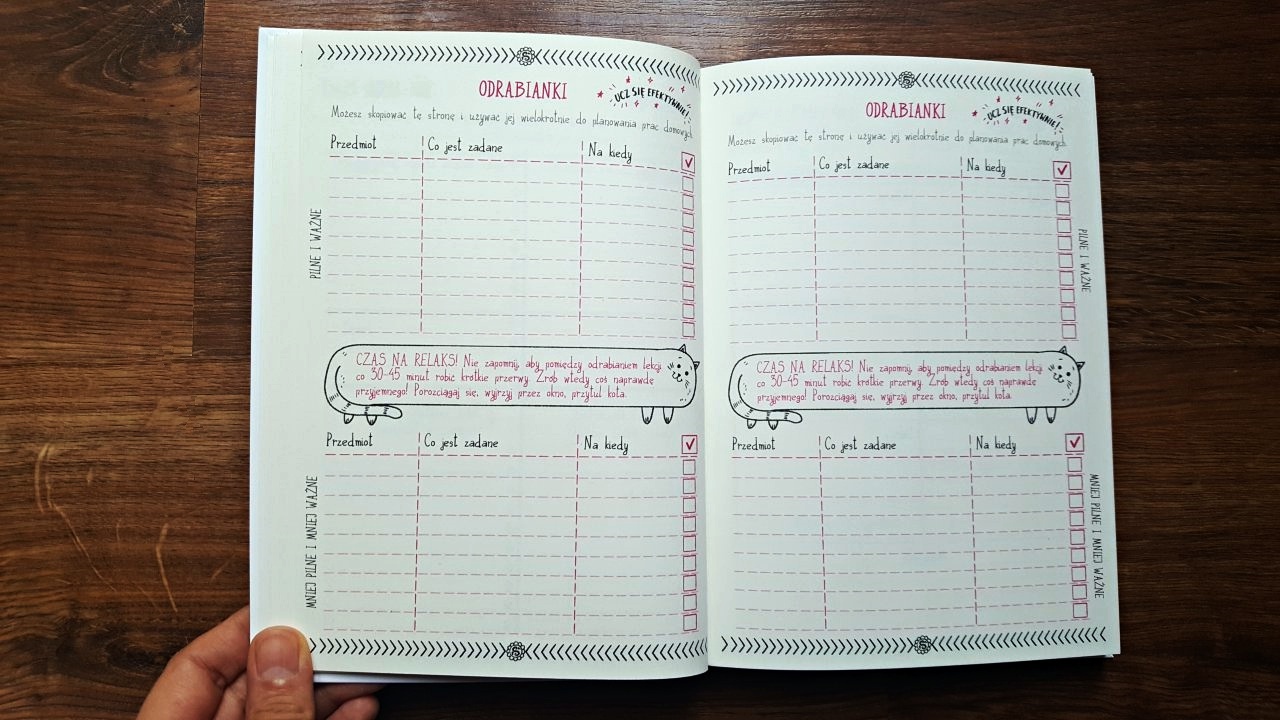 ODRABIANKI
UCZ SIĘ EFEKTYWNIE!
Możesz skopiować tę stronę i używać jej wielokrotnie do planowania prac domowych.
Przedmiot Co jest zadane Na kiedy
PILNE I WAŻNE
CZAS NA RELAKS! Nie zapomnij, aby pomiędzy odrabianiem lekcji
co 30-45 minut robić krótkie przerwy. Zrób wtedy coś naprawdę
przyjemnego! Porozciągaj się, wyjrzyj przez okno, przytul kota.
Przedmiot Co jest zadane Na kiedy
MNIEJ PILNE I MNIEJ WAŻNE
ODRABIANKI
UCZ SIĘ EFEKTYWNIE!
Możesz skopiować tę stronę i używać jej wielokrotnie do planowania prac domowych.
Przedmiot Co jest zadane Na kiedy
PILNE I WAŻNE
CZAS NA RELAKS! Nie zapomnij, aby pomiędzy odrabianiem lekcji
co 30-45 minut robić krótkie przerwy. Zrób wtedy coś naprawdę
przyjemnego! Porozciągaj się, wyjrzyj przez okno, przytul kota.
Przedmiot Co jest zadane Na kiedy
MNIEJ PILNE I MNIEJ WAŻNE